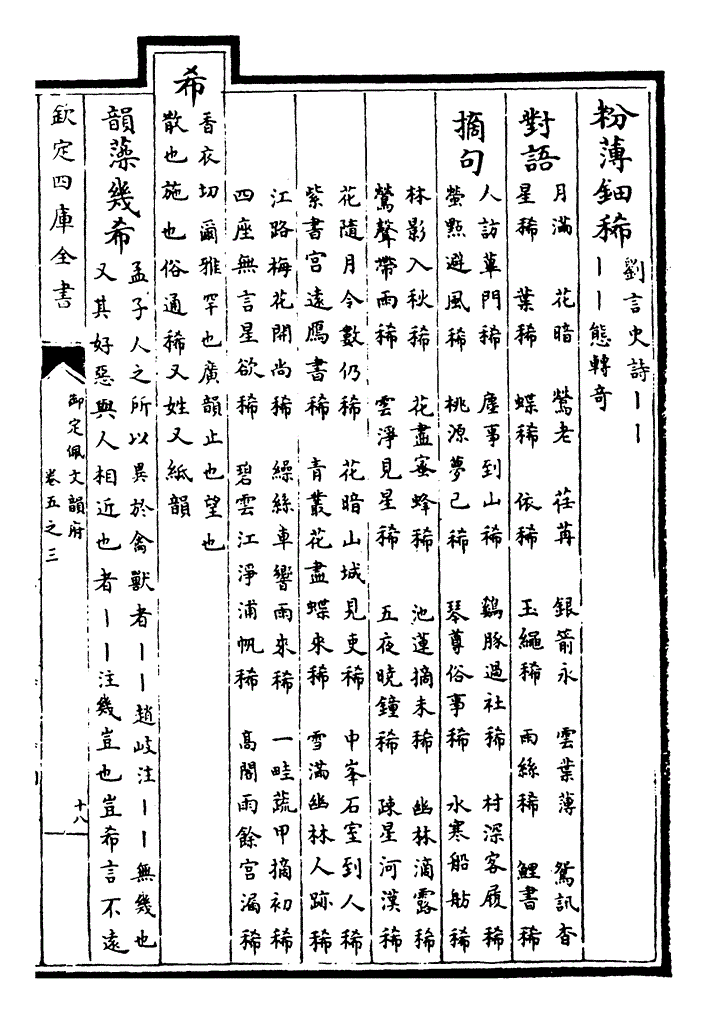 粉薄鈿稀
劉言史詩｜｜
｜｜態轉奇
對語
月滿　花暗　鶯老　荏苒　銀箭永　雲葉薄　鴛訊杳
星稀　葉稀　蝶稀　依稀　玉繩稀　雨絲稀　鯉書稀
摘句
人訪蓽門稀　塵事到山稀　鷄豚過社稀　村深客履稀
螢點避風稀　桃源夢已稀　琴尊俗事稀　水寒船舫稀
林影入秋稀　花盡蜜蜂稀　池蓮摘未稀　幽林滴露稀
鶯聲帶雨稀　雲淨見星稀　五夜曉鐘稀　疎星河漢稀
花隨月令數仍稀　花暗山城見吏稀　中峯石室到人稀
紫書宫遠鴈書稀　青叢花盡蝶來稀　雪滿幽林人跡稀
江路梅花開尚稀　繰絲車響雨來稀　一畦蔬甲摘初稀
四座無言星欲稀　碧雲江淨浦帆稀　高閣雨餘宫漏稀
希
香衣切爾雅罕也廣韻止也望也
散也施也俗通稀又姓又紙韻
韻藻幾希
孟子人之所以異於禽獸者｜｜趙岐注｜｜無幾也
又其好惡與人相近也者｜｜注幾豈也豈希言不遠
欽定四庫全書
御定佩文韻府
卷五之三
十八